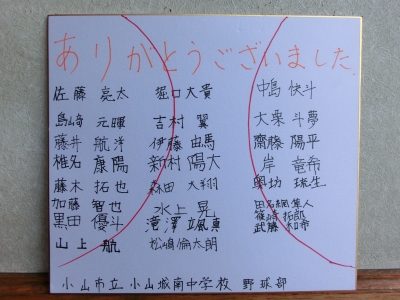 ありがとうございました
佐藤 亮太 堀口大貴 中島 快斗
島崎 元暉 吉村 翼 大栗 斗夢
藤井 航洋 伊藤 由馬 齋藤 陽平
椎名 康陽 新村 陽大 岸 竜希
藤木 拓也 森田 大翔 奥坊 琉生
加藤 智也 水上 晃 田名網 隼人
黒田 優斗 滝澤 颯真 篠崎 拓郎
山上 航 松嶋倫太朗 武藤 和希
小山市立 小山城南中学校 野球部